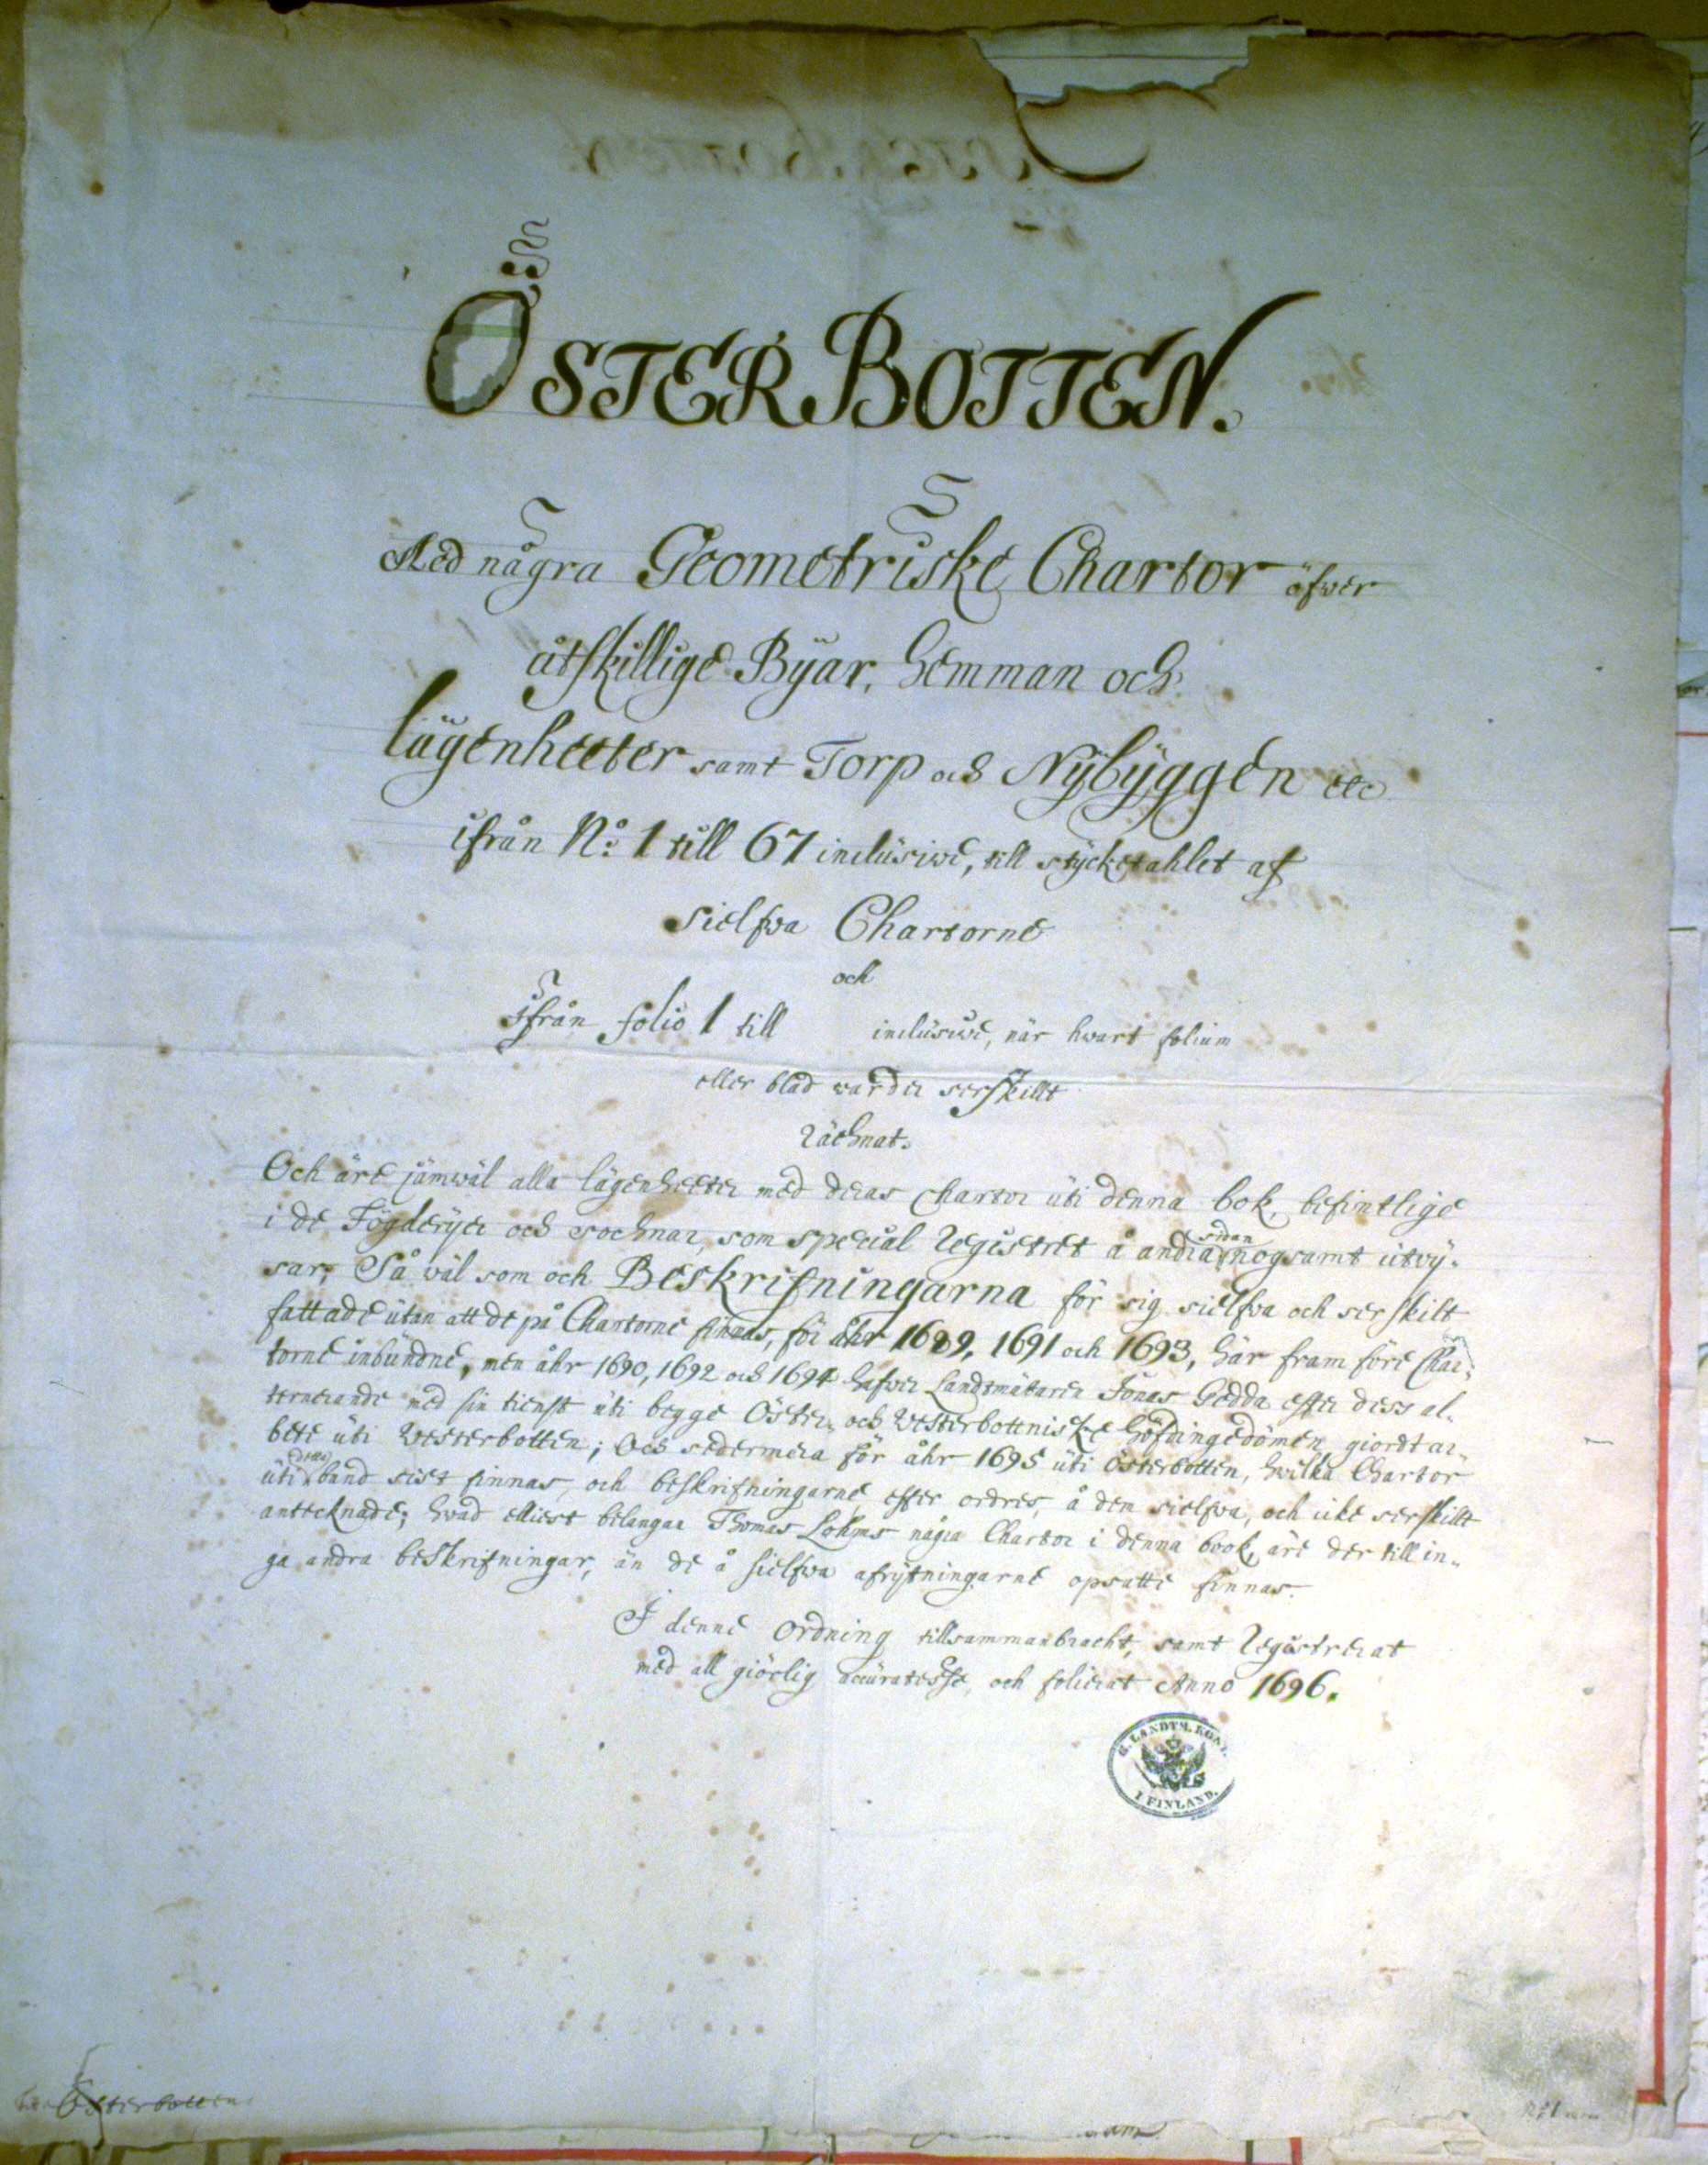 ÖSTERBOTTEN.
Med några Geometriske Chartor öfwer
åtskillige Byar, Hemman och
lägenheeter samt Torp och Nybyggen etc
ifrån No: 1 till 67 inclusive, till stycketahlet af
sielfwa Chartorne
och
Ifrån folio 1 till inclusive, när hwart folium
eller blad warder serskillt
rächnat.
Och äre jämwäl alla lägenheeter med deras Chartor uti denna bok, befintlige
i de Fögderyer och sochnar, som special Registret å andra sidan nogsamt utwy-
sar; Så wäl som och Beskrifningarna för sig sielfwa och serskilt
fattade utan att de på Chartorne finnas, för åhr 1689, 1691 och 1693, här fram före Char-
torne inbundne, men åhr 1690, 1692 och 1694 hafwer Landtmätaren Jonas Gedda efter dess al-
ternerande med sin tienst uti begge Öster- och Westerbottniske Höfdingedömen giordt ar-
bete uti Westerbotten; Och sedermera för åhr 1695 uti Österbotten, hwilka Chartor
uti detta band sist finnas, och beskrifningarne, efter ordres, å dem sielfwa, och icke serskillt
antecknade; hwad elliest belangar Thomas Lohms några Chartor i denna book, äre der till in-
ga andra beskrifningar, än de å sielfwa afrytningarne opsatte finnas.
I denne ordning tillsammanbracht, samt Registrerat
med all giörlig accuratesse, och folierat Anno 1696.
G. LANDTM. KONT.
I FINLAND.
Österbotten